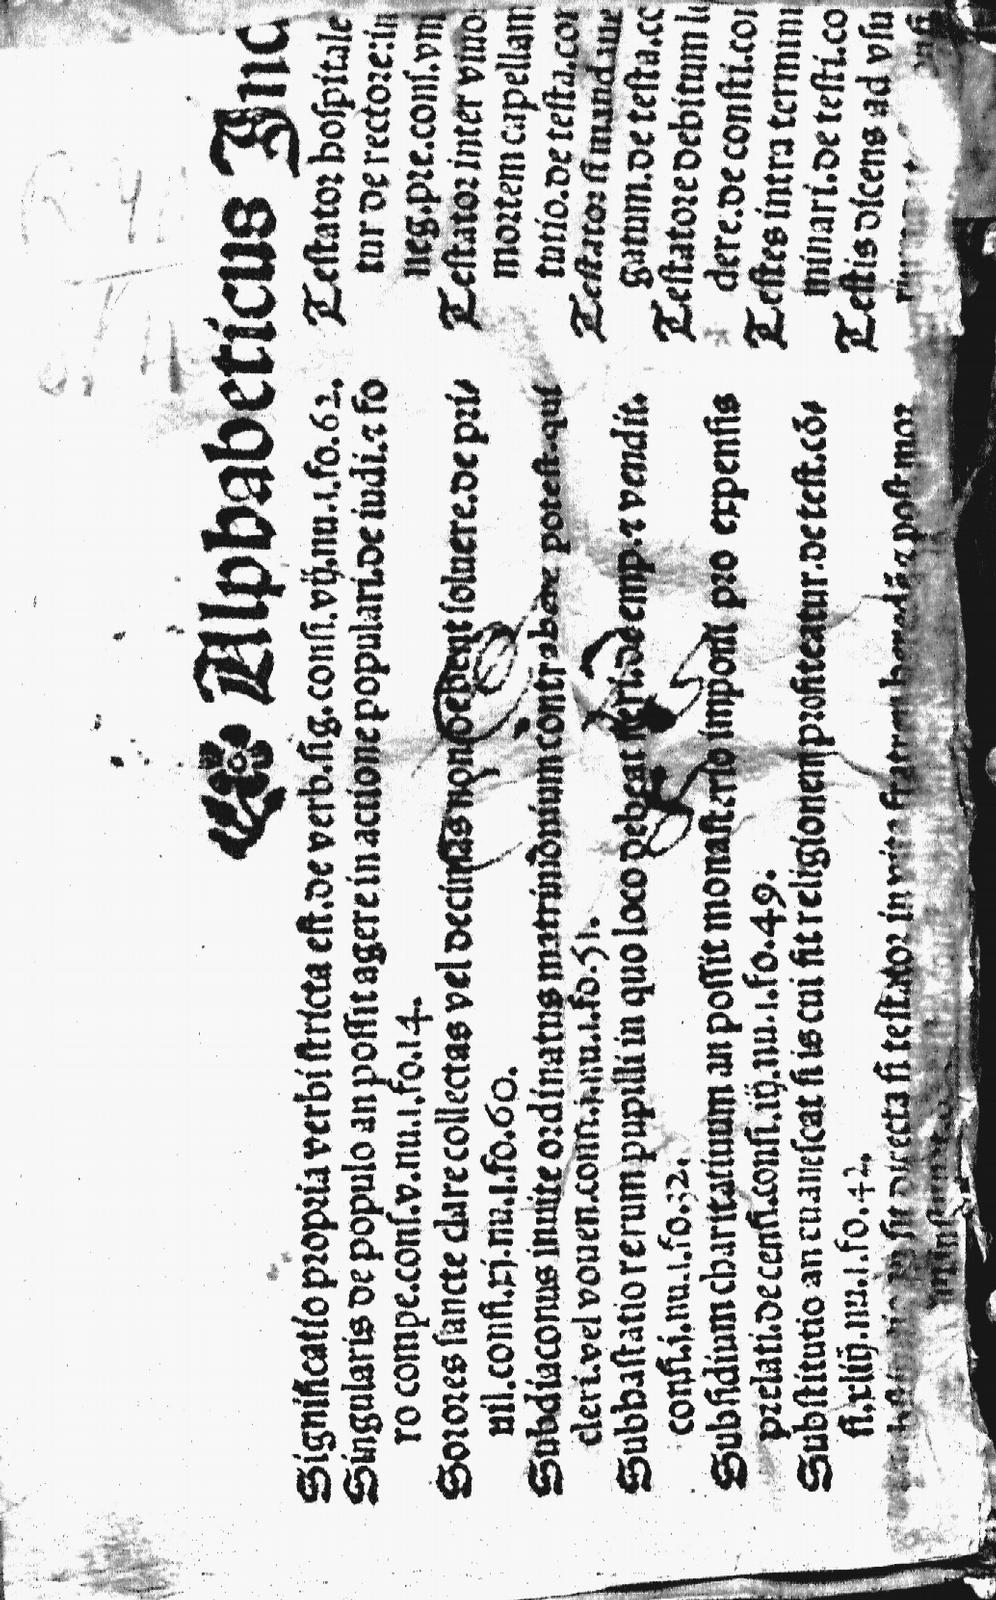 Alphabeticus Ind
Significatio propria verbi stricta est.de verb.sig.consi.vij.nu.1.fo.62.
Singularis de populo an possit agere in actione populari.de iudi.⁊ fo
ro compe.cons.v.nu.1.fo.14.
Sorores sancte clare collectas vel decimas non debent soluere.de pri/
uil.consi.xj.nu.1.fo.60.
Subdiaconus inuite ordinatus matrimonium contrahere potest.qui
cleri.vel vouen.consi.j.nu.1.fo.51.
Subhastatio rerum pupilli in quo loco debeat fieri.de emp.⁊ vendit.
consi.j.nu.1.fo.32.
Subsidium charitatiuum an possit monasterio imponi pro expensis
prelati.de censi.consi.iij.nu.1.fo.49.
Substitutio an euanescat si is cui fit religionem profiteatur.de test.cō/
si.xliij.nu.1.fo.42.
directa si testator in vita fratrum ⁊ post mor
Testator hospitale
tur de rectore:in
neg.pre.cons.vni
Testator inter viuo
mortem capellam
tutio.de testa.con
Testator si mandaue
gatum.de testa.co
Testatore debitum l
dere.de consti.con
Testes intra termini
minari.de testi.co
Testis dicens ad vsu